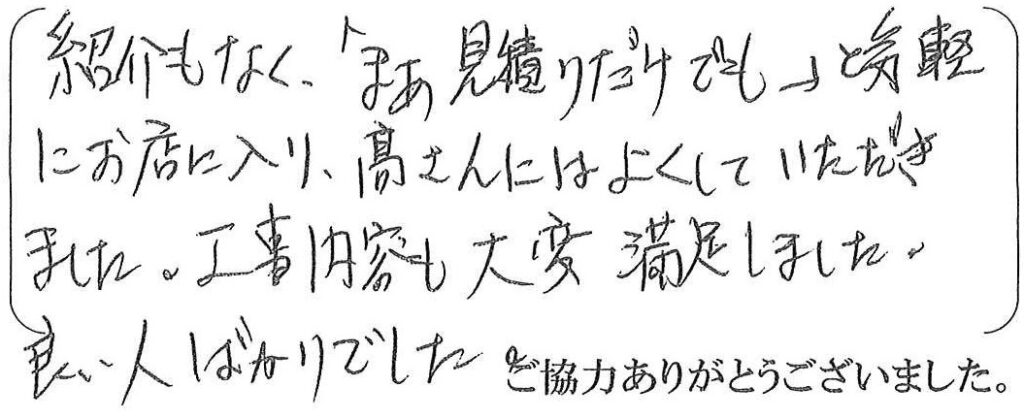 紹介もなく、「まあ見積りだけでも」と気軽
にお店に入り、高さんにはよくしていただき
ました。工事内容も大変満足しました。
良い人ばかりでした。ご協力ありがとうございました。